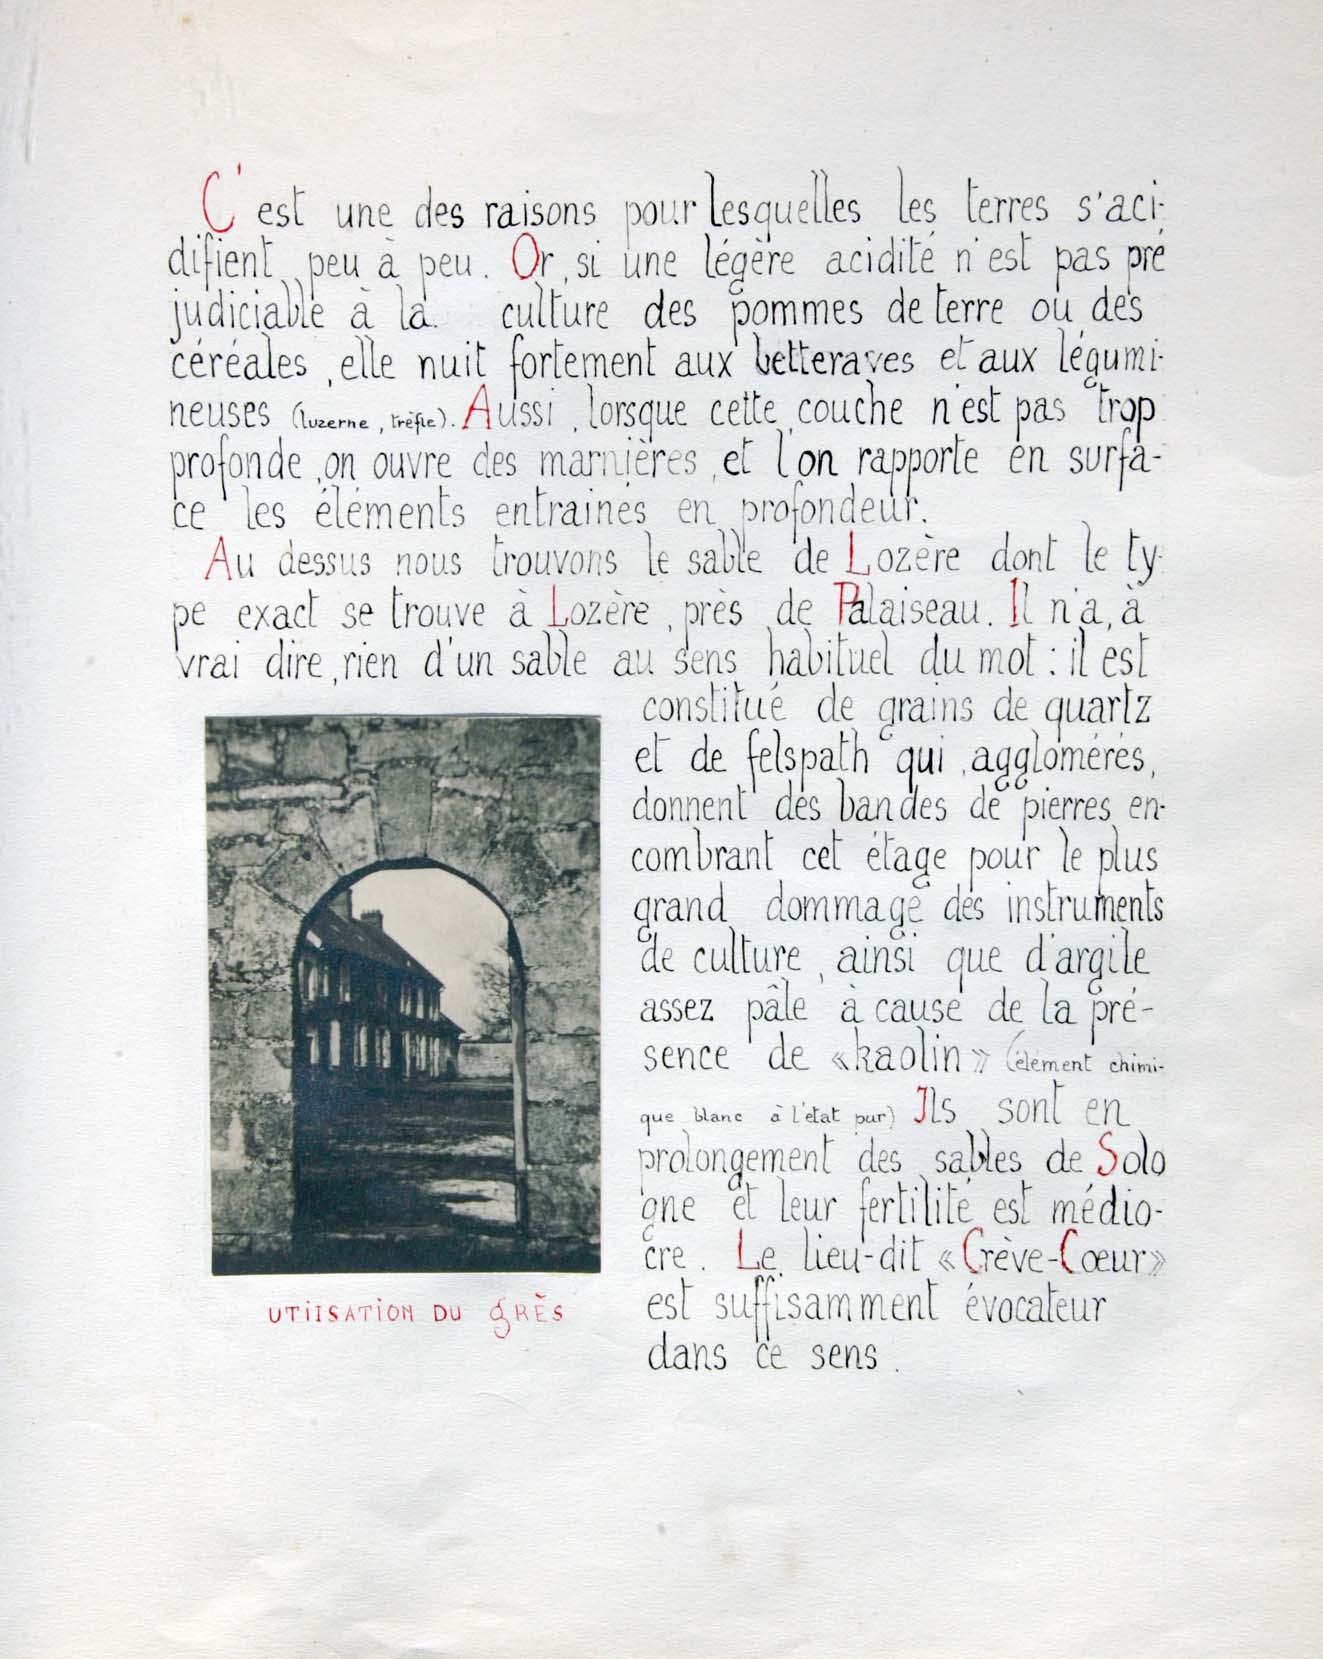 C'est une des raisons pour lesquelles les terres s'aci-
difient peu à peu. Or, si une légère acidité n'est pas pré
judiciable à la culture des pommes de terre ou des
céréales, elle nuit fortement aux betteraves et aux légumi-
neuses (luzerne, trèfle). Aussi, lorsque cette couche n'est pas trop
profonde, on ouvre des marnières, et l'on rapporte en surfa-
ce les éléments entrainés en profondeur.
Au dessus nous trouvons le sable de Lozère dont le ty-
pe exact se trouve à Lozère, près de Palaiseau. Il n'a, à
vrai dire, rien d'un sable au sens habituel du mot : il est
constitué de grains de quartz
et de felspath qui, agglomérés,
donnent des bandes de pierres en-
combrant cet étage pour le plus
grand dommage des instruments
de culture, ainsi que d'argile
assez pâle à cause de la pré-
sence de «kaolin» (élément chimi-
que blanc à l'état pur) Ils sont en
prolongement des sables de Solo
gne et leur fertilité est médio-
cre. Le lieu-dit «Crève-Cœur»
est suffisamment évocateur
dans ce sens.
UTIISATION DU GRÈS